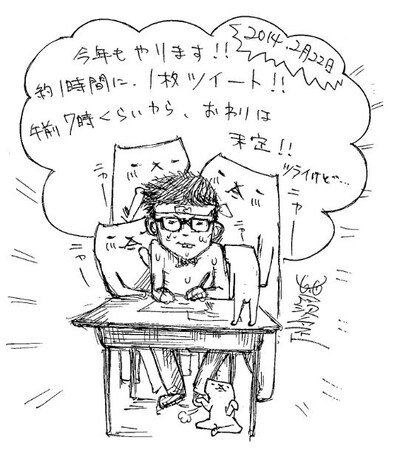 2014.2月22日
今年もやります!!
約1時間に、1枚ツイート!!
午前7時くらいから、おわりは
未定!!
ツライけど…
ニャー
ニャー
ニャー